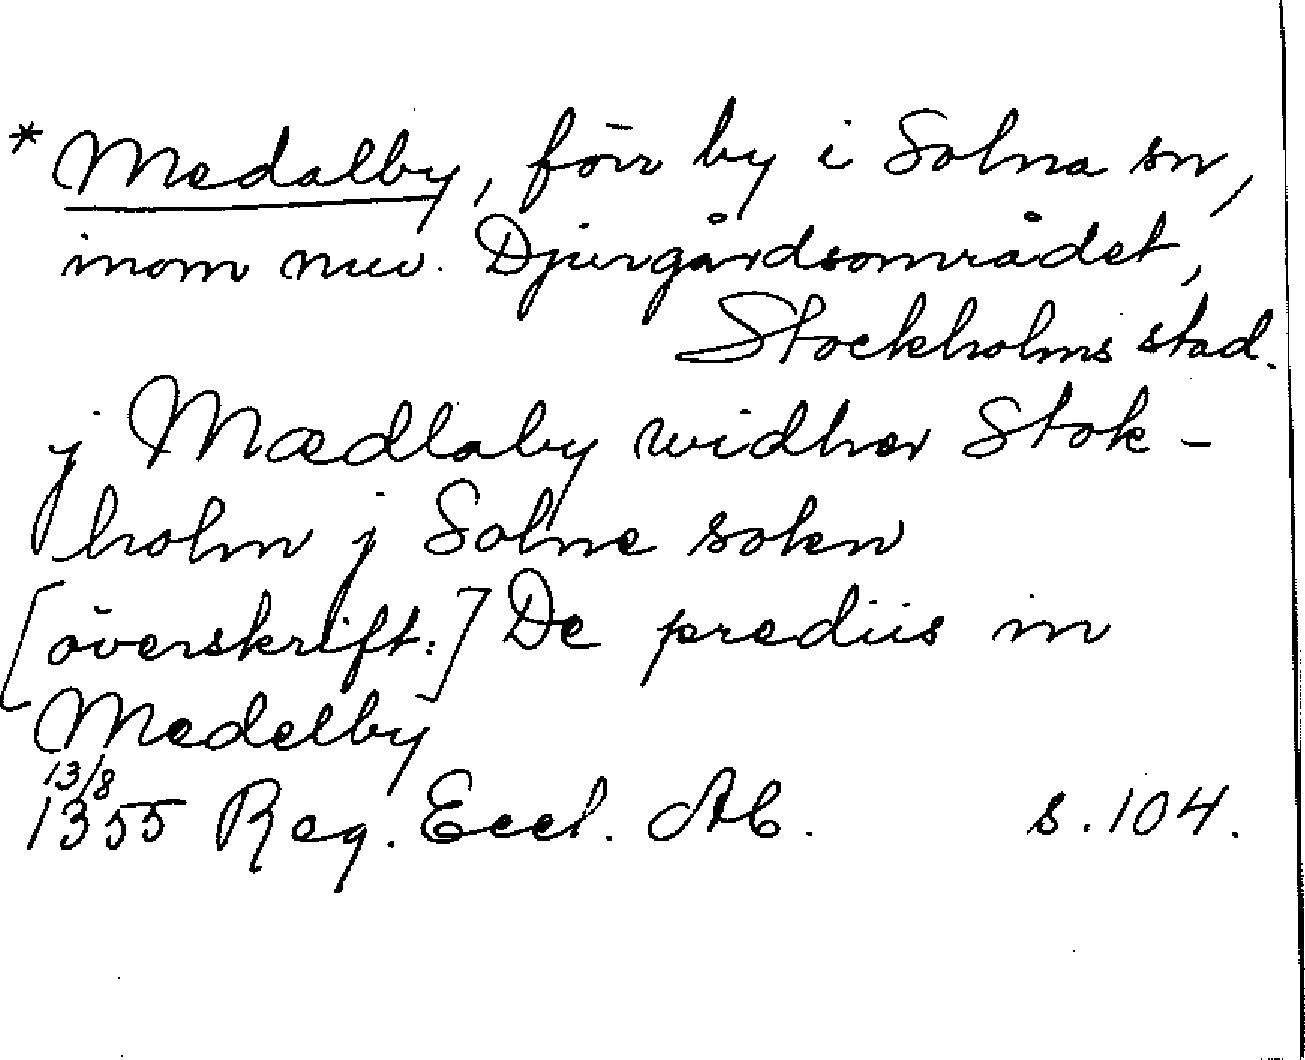 * Medalby, förr by i Solna sn,
inom nuv. Djurgårdsområdet,
Stockholms stad.
j Mædlaby widher Stok-
holm j Solne sokn
[överskrift:] De prediis in
Medelby
13/8
1355 Reg. Eccl. AC. s. 104.